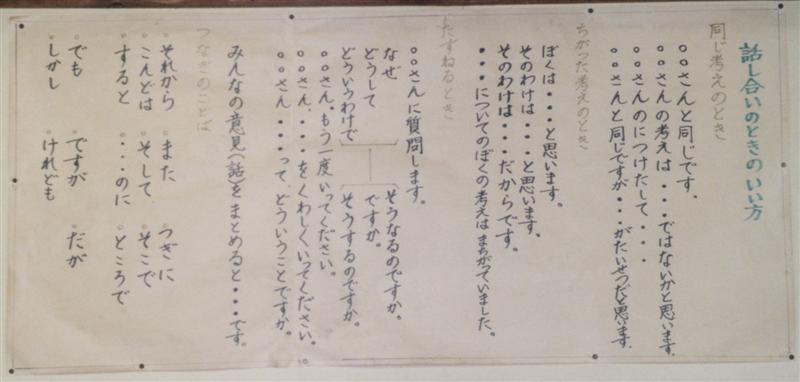 話し合いのときのいい方
同じ考えのとき
○○さんと同じです。
○○さんの考えは・・・ではないかと思います。
○○さんのにつけたして・・・
○○さんと同じですが・・・がたいせつだと思います。
ちがった考えのとき
ぼくは・・・と思います。
そのわけは・・・と思います。
そのわけは・・・だからです。
・・・についてのぼくの考えはまちがっていました。
たずねるとき
○○さんに質問します。
なぜ そうなるのですか。
どうして ですか。
どういうわけで そうするのですか。
○○さん、もう一度いってください。
○○さん、・・・をくわしくいってください。
○○さん、・・・って、どういうことですか。
みんなの意見(話)をまとめると・・・です。
つなぎのことば
○それから ○また ○つぎに
○こんどは ○そして ○そこで
○すると ○・・・のに ○ところで
○でも ○ですが ○だが
○しかし ○けれども